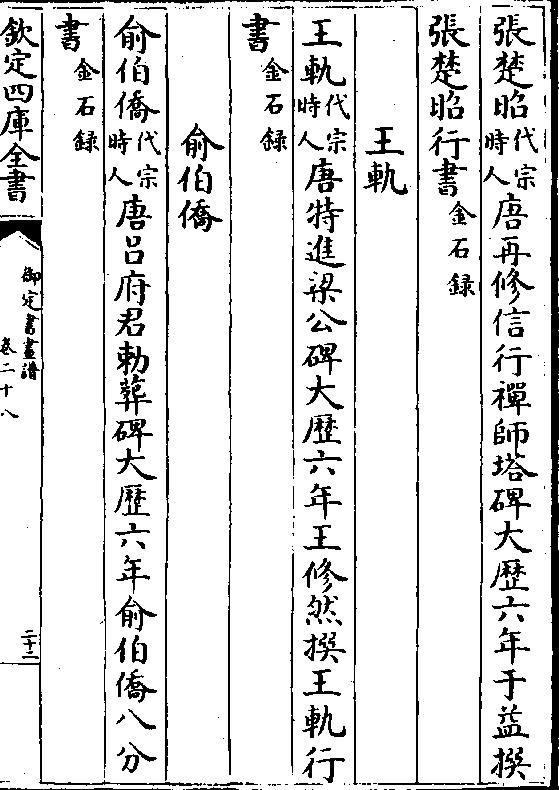 張楚昭代宗時人唐再修信行禪師塔碑大歷六年于益撰
張楚昭行書金石録
王軌
王軌代宗時人唐特進梁公碑大歷六年王修然撰王軌行
書金石録
俞伯僑
俞伯僑代宗時人唐吕府君勅葬碑大歷六年俞伯僑八分
書金石録
欽定四庫全書
御定書畫譜
卷二十八
二十二